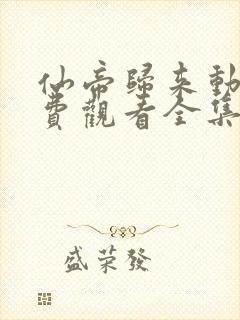 仙帝歸來動
費觀看全集
盛荣發